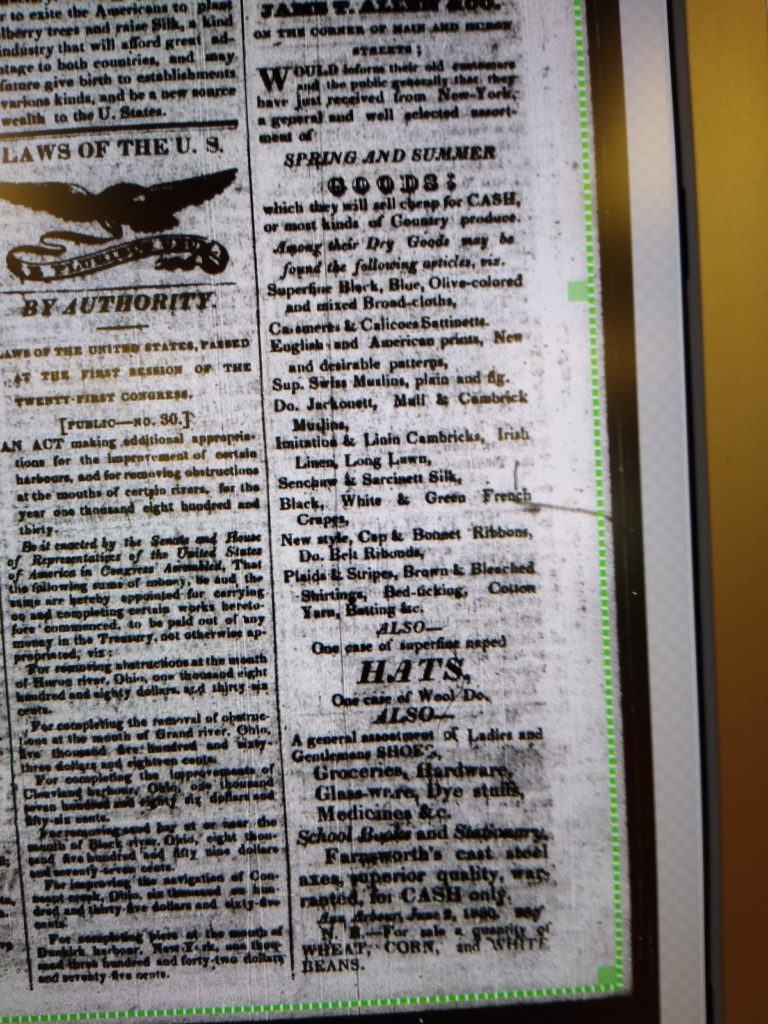 r to exite the Americans to plant
lberry trees and raise Silk, a kind
industry that will afford great ad-
tage to both countries, and may
future give birth to establishments
various kinds, and be a new source
wealth to the U. States.
LAWS OF THE U. S.
E PLURIBUS UNUM
BY AUTHORITY.
LAWS OF THE UNITED STATES, PASSED
AT THE FIRST SESSION OF THE
TWENTY-FIRST CONGRESS.
[PUBLIC—NO. 30.]
AN ACT making additional appropria-
tions for the improvement of certain
harbours, and for removing obstructions
at the mouths of certain rivers, for the
year one thousand eight hundred and
thirty.
Be it enacted by the Senate and House
of Representatives of the United States
of America in Congress Assembled, That
the following sums of money, be and the
same are hereby appointed for carrying
on and completing certain works hereto-
fore commenced, to be paid out of any
money in the Treasury, not otherwise ap-
propriated, viz:
For removing obstructions at the mouth
of Huron river, Ohio, one thousand eight
hundred and eighty dollars, and thirty six
cents.
For completing the removal of obstruc-
tions at the mouth of Grand river, Ohio,
five thousand five hundred and sixty-
three dollars and eighteen cents.
For completing the improvements of
Cleaveland harbour, Ohio, one thousand
seven hundred and eighty six dollars and
fifty-six cents.
For removing sand bar at or near the
mouth of Black river, Ohio, eight thou-
sand five hundred and fifty nine dollars
and seventy-seven cents.
For improving the navigation of Con-
neaut creek, Ohio, six thousand one hun-
dred and thirty-five dollars and sixty-five
cents.
For completing piers at the mouth of
Dunkirk harbour, New-York, one thou-
sand three hundred and forty-two dollars
and seventy five cents.
JAMES T. ALLEN & CO.
ON THE CORNER OF MAIN AND HURON
STREETS;
WOULD inform their old customers
and the public generally that they
have just received from New-York,
a general and well selected assort-
ment of
SPRING AND SUMMER
GOODS;
which they will sell cheap for CASH,
or most kinds of Country produce.
Among their Dry Goods may be
found the following articles, viz.
Superfine Black, Blue, Olive-colored
and mixed Broad-cloths,
Casimeres & Calicoes Sattinetts.
English and American prints, New
and desirable patterns,
Sup. Swiss Muslins, plain and fig.
Do. Jackonett, Mull & Cambrick
Muslins,
Imitation & Linin Cambricks, Irish
Linen, Long Lawn,
Senchaw & Sarcinett Silk,
Black, White & Green French
Crapes,
New style, Cap & Bonnet Ribbons,
Do. Belt Ribonds,
Plaids & Stripes, Brown & Bleached
Shirtings, Bed-ticking, Cotton
Yarn, Batting &c.
ALSO—
One case of superfine naped
HATS,
One case of Wool Do.
ALSO—
A general assostment of Ladies and
Gentlemans SHOES,
Groceries, Hardware,
Glass-were, Dye stuffs,
Medicines &c.
School Books and Stationary.
Farnsworth's cast steel
axes, superior quality, war-
ranted, for CASH only.
Ann Arbour, June 2, 1830.
N. B.—For sale a quantity of
WHEAT, CORN, and WHITE
BEANS.